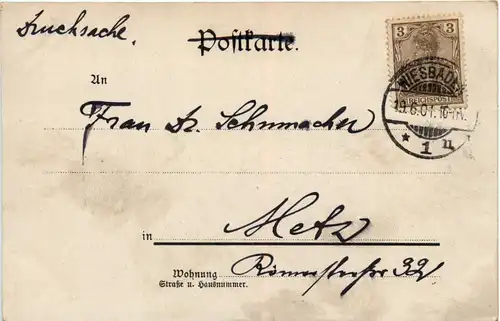 Drucksache.
Postkarte.
3 3
REICHSPOST
WIESBADEN
19.6.01. 10-11V.
* 1 n
An
Frau Dr. Schumacher
in Metz
Wohnung Römerstraße 32
Straße u. Hausnummer.